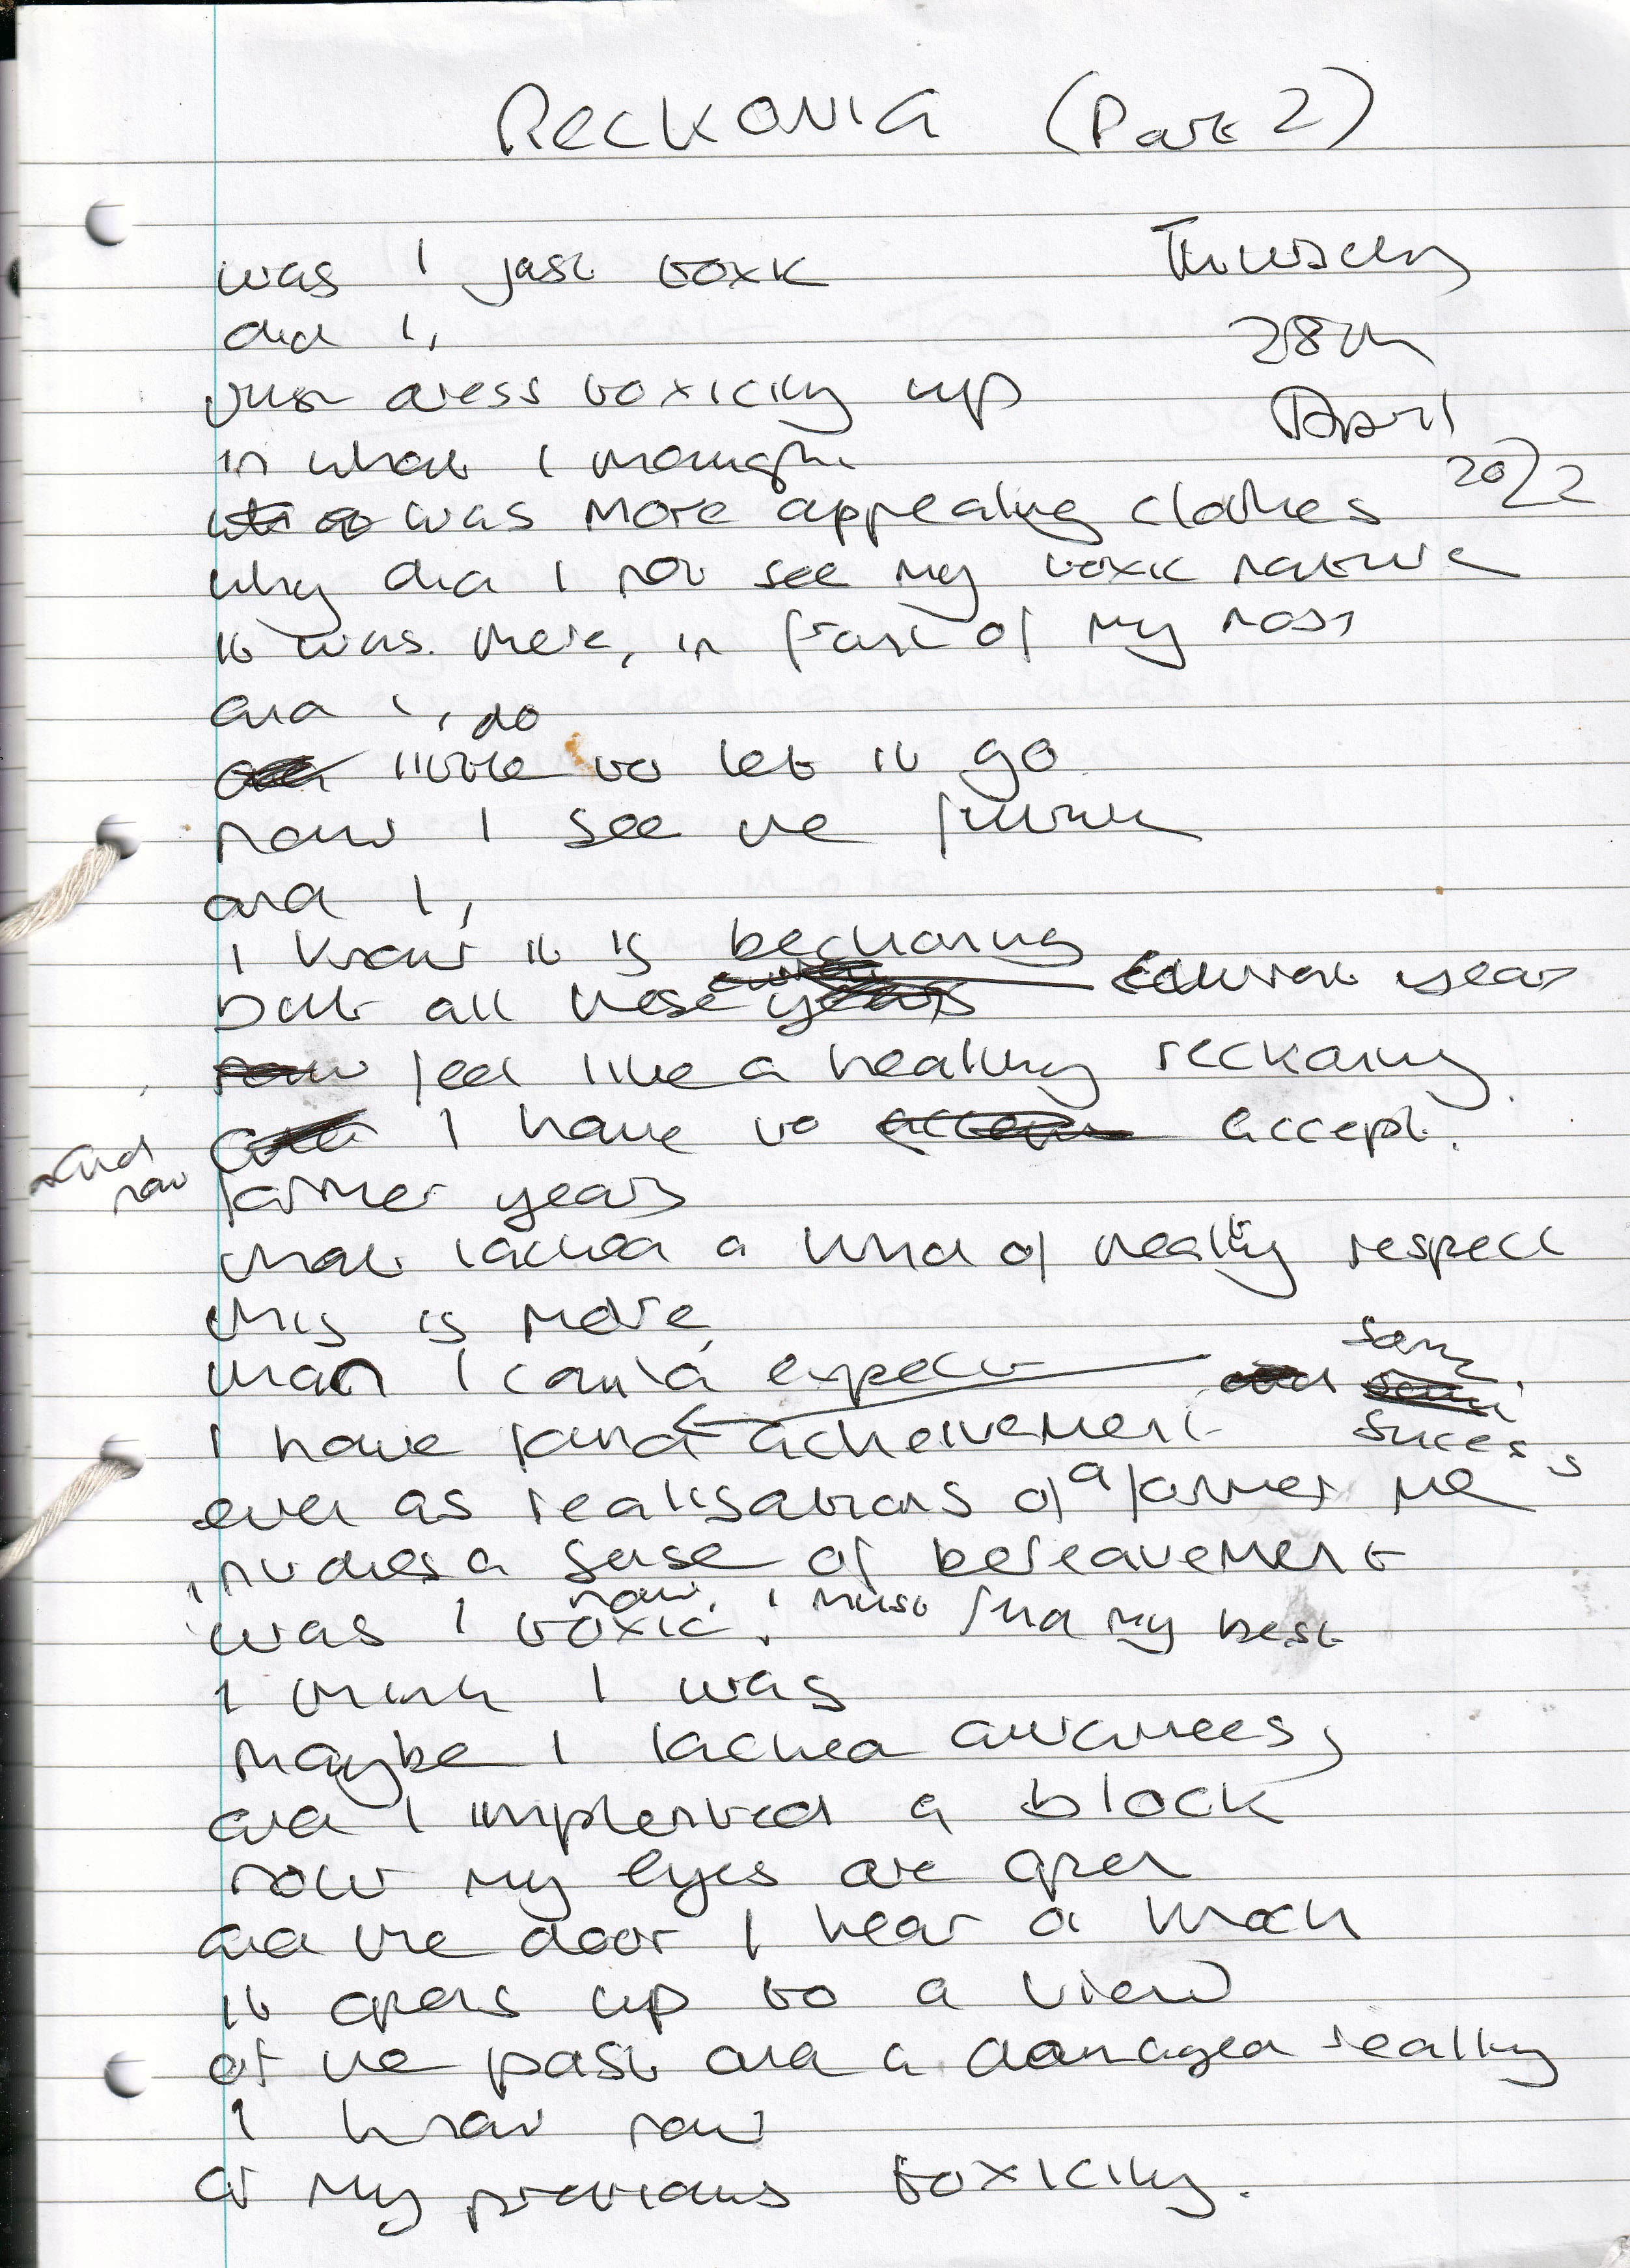 Reckoning (Part 2)
Thursday
28th
April
2022
was I just toxic
did I,
just dress toxicity up
in what I thought
was more appealing clothes
why did I not see my toxic nature
it was there, in front of my nose
and I, do
little to let it go
now I see the future
and I,
I know it is beckoning
but all these current years
feel like a healing reckoning
and now I have to accept.
former years
that lacked a kind of healthy respect
this is more
than I could expect
some success
I have found acheivement
even as realisations of a former me
a sense of bereavement
was I toxic. now, I must find my best
I think I was
maybe I lacked awareness
and I implented a block
now my eyes are open
and the door I hear a knock
it opens up to a view
of the past and a damaged reality
I know now
of my previous toxicity.